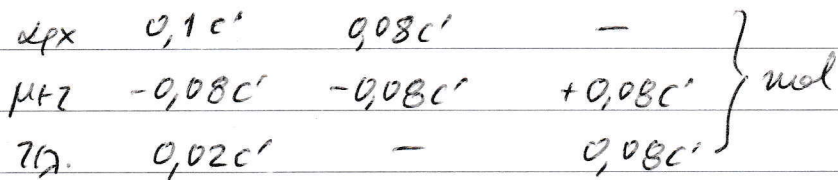 αρχ 0,1c' 0,08c' —
μετ -0,08c' -0,08c' +0,08c' } mol
τελ. 0,02c' — 0,08c'